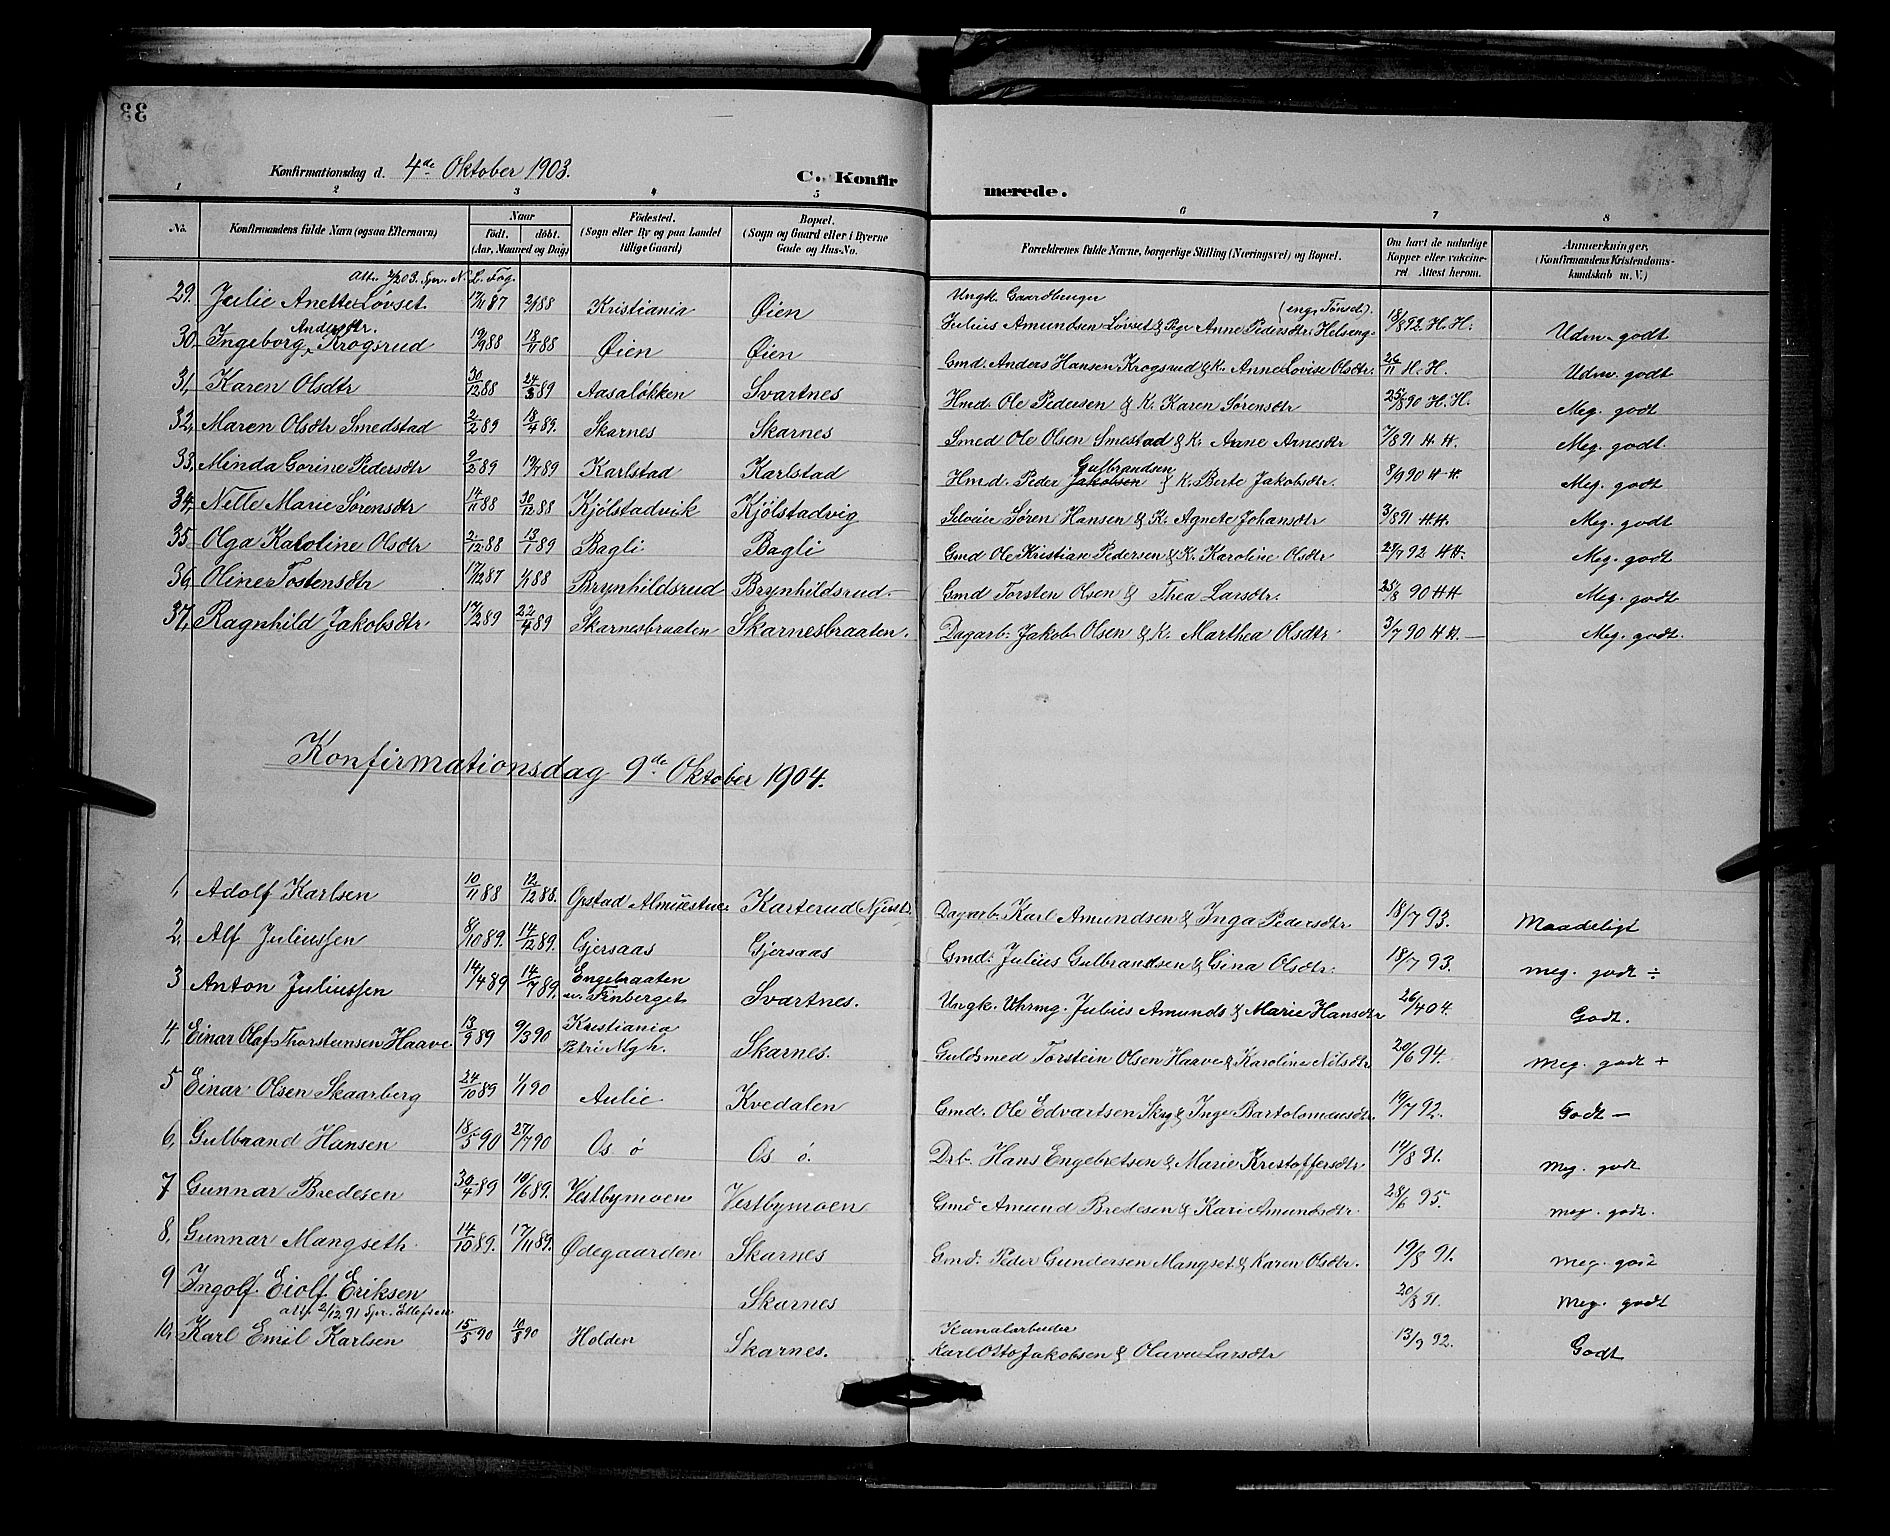 33
Konfirmationsdag d. 4de Oktober 1903. C. Konfirmerede.
1 2 3 4 5 6 7 8
No. Konfirmandens fulde Navn (ogsaa Efternavn) Naar födt. döbt. (Aar, Maaned og Dag) Födested. (Sogn eller By og paa Landet tillige Gaard) Bopæl. (Sogn og Gaard eller i Byerne Gade og Hus-No. Forældrenes fulde Navne, borgerlige Stilling (Næringsvei) og Bopæl. Om havt de naturlige Kopper eller vaccineret. Attest herom. Anmærkninger. (Konfirmandens Kristendomskundskab m. V.)
Att. 7/9 03. Spr. N. L. Fog.
29. Julie Anette Lövset 17/11 87 2/1 88 Kristiania Øien Ungk. Gaardbruger Julius Amundsen Lövset & Pige Anne Pedersdtr. Helseng (eng. Tönset). 18/8 92 H. H. Udm. godt
30. Ingeborg Andersdtr. Krogsrud 19/9 88 18/11 88 Øien Øien Gmd. Anders Hansen Krogsrud & K. Anne Lovise Olsdtr. 26/11 H. H. Udm. godt
31, Karen Olsdtr 30/12 88 24/3 89 Aasalökken Svartnes Hmd. Ole Pedersen & K. Karen Sörensdtr 25/8 90 H. H. Meg. godt
32, Maren Olsdtr Smedstad 2/2 89 18/4 89. Skarnes Skarnes Smed Ole Olsen Smestad & K. Anne Arnesdtr 7/8 91 H. H. Meg. godt
33, Minda Gorine Pedersdtr 9/2 89 19/4 89 Karlstad Karlstad Hmd. Peder Jakobsen Gulbrandsen & K. Berte Jakobsdtr. 8/9 90 H. H. Meg. godt
34, Nelle Marie Sörensdtr 14/11 88 30/12 88 Kjölstadvik Kjölstadvig Selveier Sören Hansen & K. Agnete Johansdtr 3/8 91 H.H. Meg. godt
35 Olga Karoline Olsdtr 2/12 88 13/1 89 Bagli Bagli Gmd Ole Kristian Pedersen & K. Karoline Olsdtr 27/7 92 H H. Meg. godt
36, Oline Tostensdtr 17/12 87 1/1 88 Brynhildsrud Brynhildsrud. Gmd Torsten Olsen & Thea Larsdtr. 25/8 90 H H Meg. godt
37, Ragnhild Jakobsdtr 17/2 89 22/4 89 Skarnesbraaten Skarnesbraaten. Dagarb. Jakob Olsen & K. Marthea Olsdtr 3/7 90 H H. Meg. godt.
Konfirmationsdag 9de Oktober 1904.
1, Adolf Karlsen 10/11 88 12/12 88. Opstad Almuestue Karterud Dagarb. Karl Amundsen & Inga Pedersdtr 18/7 93. Maadeligt
2, Alf Juliussen 8/10 89. 14/12 89. Gjersaas Gjersaas Gmd. Julius Gulbrandsen & Gina Olsdtr. 18/7 93. meg. godt ÷
3 Anton Juliussen 14/4 89 14/7 89. Engebraaten u. Finberget Svartnes. Ungk. Uhrmg. Julius Amunds & Marie Hansdtr 26/4 04. Godt.
4, Einar Olaf Thorsteinsen Haave 13/9 89 9/3 90 Kristiania Petri Mgh. Skarnes. Guldsmed Torstein Olsen Haave & Karoline Nilsdtr 20/6 94. Meg. godt +
5 Einar Olsen Skaarberg 24/10 89 1/1 90 Aulie Kvedalen Gmd. Ole Edvartsen & Inge Bartolomeusdtr. 19/7 92. Godt –
6, Gulbrand Hansen 18/5 90 27/7 90 Os ö Os ö. Drb. Hans Engebretsen & Marie Kristoffersdtr 14/8 91. Meg. godt
7 Gunnar Bredesen 30/4 89 10/6 89. Vestbymoen Vestbymoen Gmd Amund Bredesen & Kari Amundsdtr. 28/6 95. meg. godt.
8, Gunnar Mangseth 14/10 89. 17/11 89. Ødegaarden Skarnes Gmd. Peder Gundersen Mangset & Karen Olsdtr. 19/8 91. Meg. godt
9 Ingolf Eiolf Eriksen Skarnes 20/8 91. Meg. godt
att. 2/12 91 Spr. Ellefsen
10, Karl Emil Karlsen 15/5 90 10/8 90 Holden Skarnes. Kanalarbeider Karl Otto Jakobsen & Olava Larsdtr 13/9 92. Godt